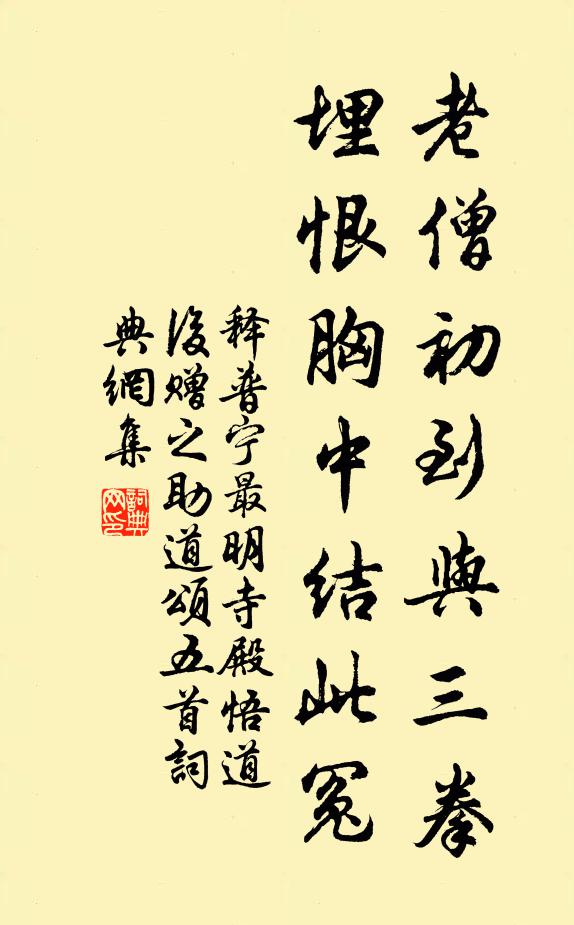 老僧初到與三拳
埋恨胸中結此冤
释普宁最明寺殿悟道
後赠之助道頌五首詞
典網集
詞典
网印